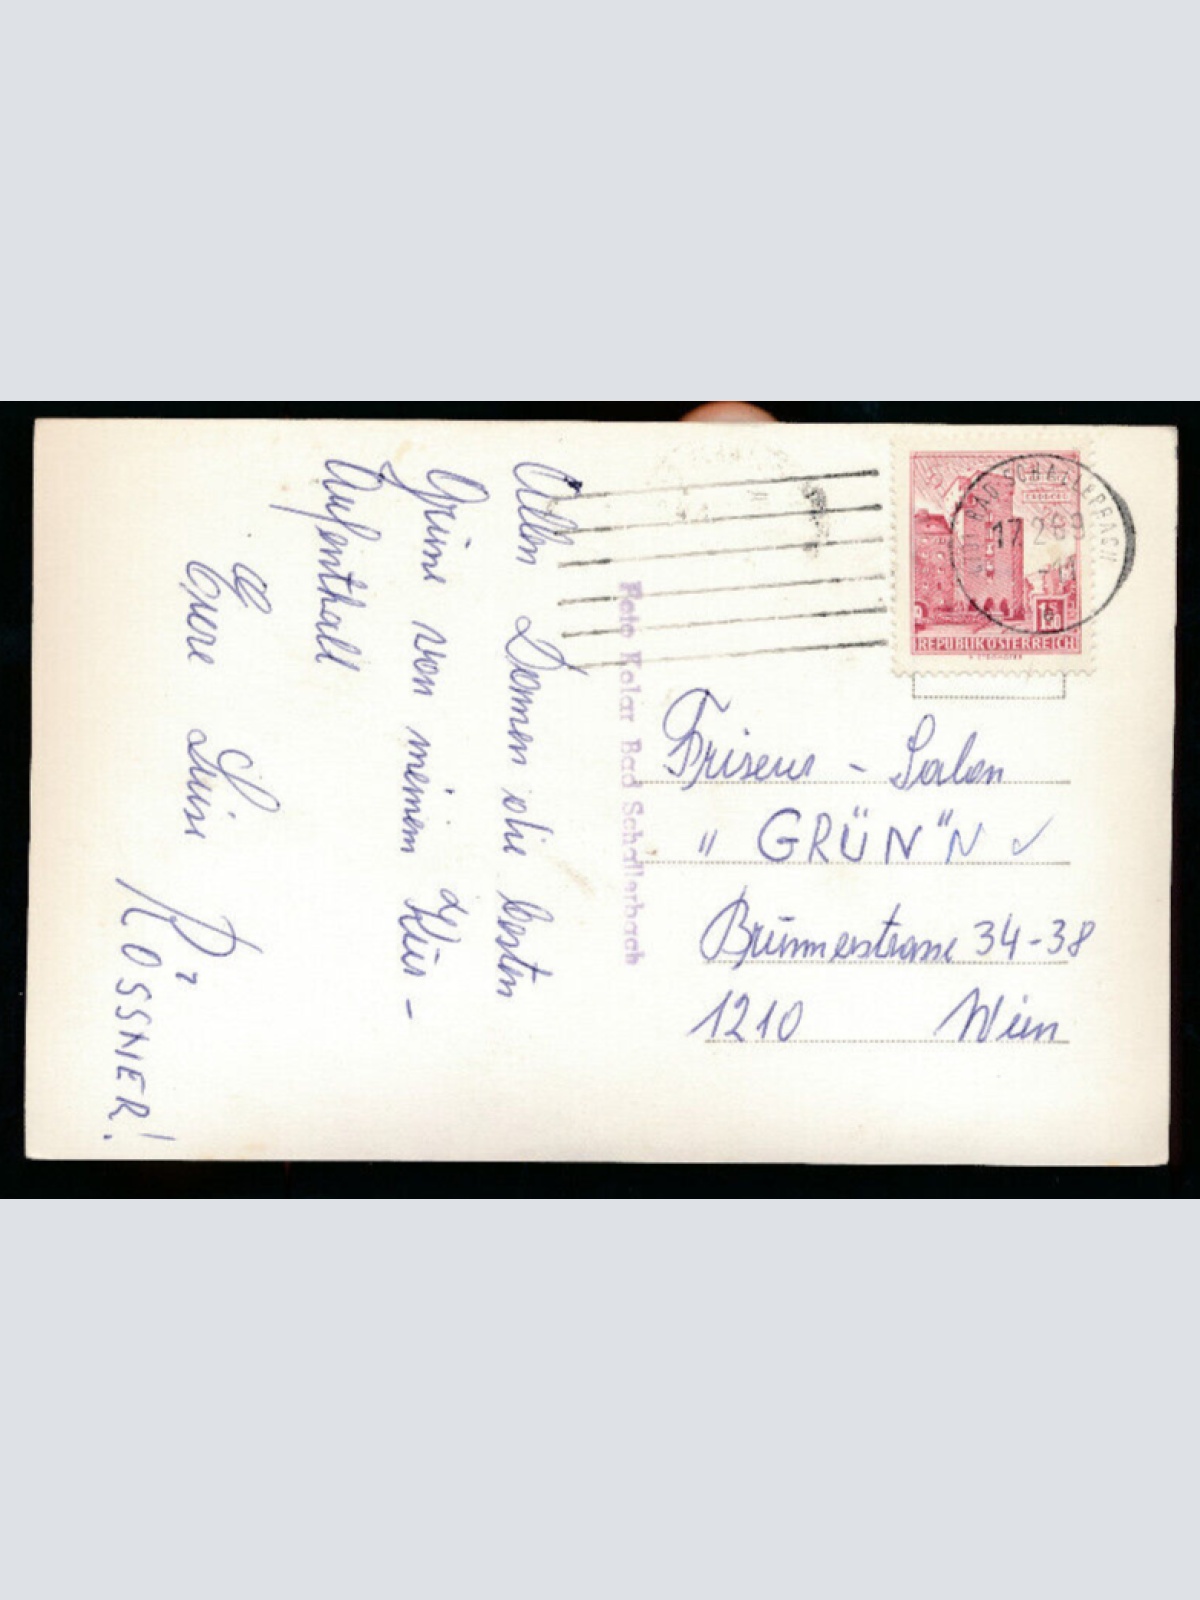 Allen Damen die besten
Grüsse von meinem Kur-
Aufenthalt
Eure Luise
RÖSSNER!
Foto Kolar Bad Schallerbach
BAD SCHALLERBACH
17.2.69-11
b
1.50
REPUBLIK ÖSTERREICH
Friseur - Salon
" GRÜN"N ✓
Brünnerstrasse 34-38
1210 Wien